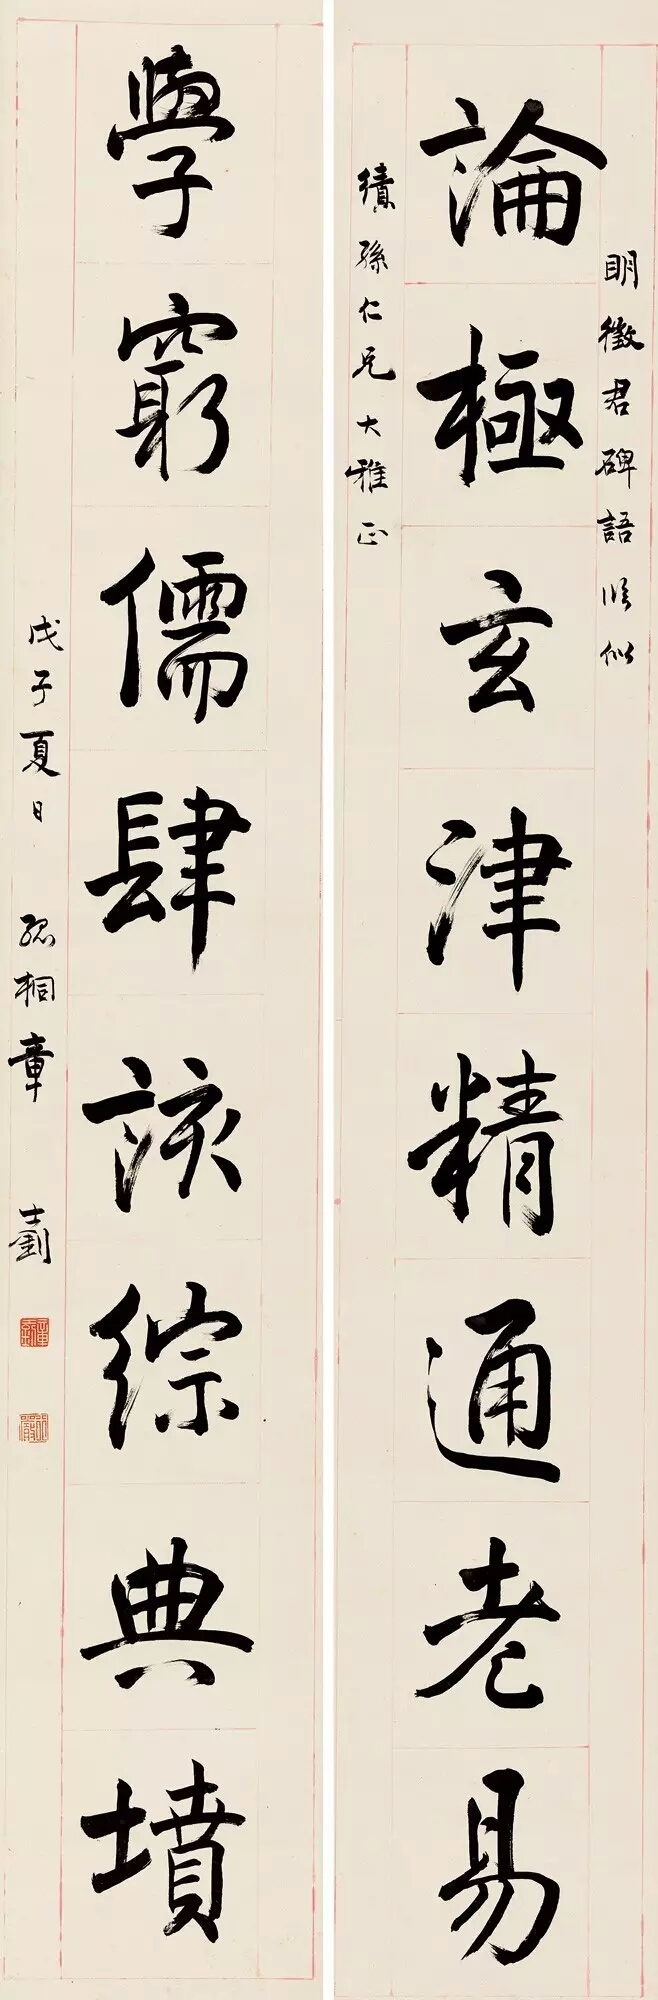 明徵君碑語似
論極玄津精通老易
績孫仁兄大雅正
學窮儒肆該綜典墳
戊子夏日 孤桐章士釗